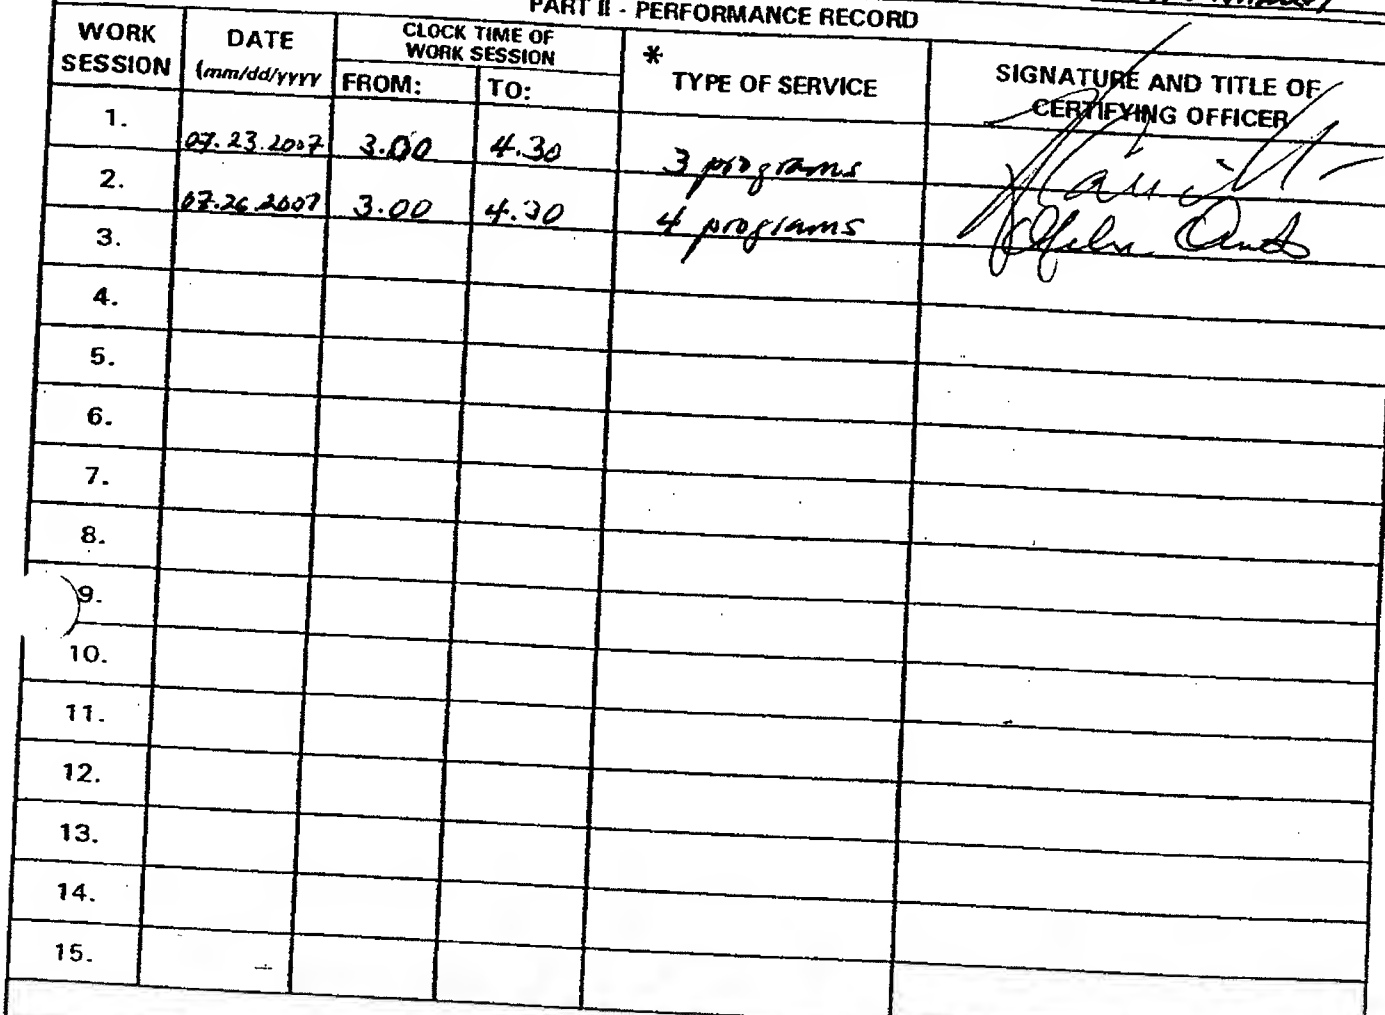 PART II - PERFORMANCE RECORD
WORK SESSION
DATE (mm/dd/yyyy
CLOCK TIME OF WORK SESSION
FROM:
TO:
* TYPE OF SERVICE
SIGNATURE AND TITLE OF CERTIFYING OFFICER
1. 07.23.2007 3.00 4.30 3 programs
2. 07.26.2007 3.00 4.30 4 programs
3.
4.
5.
6.
7.
8.
9.
10.
11.
12.
13.
14.
15.